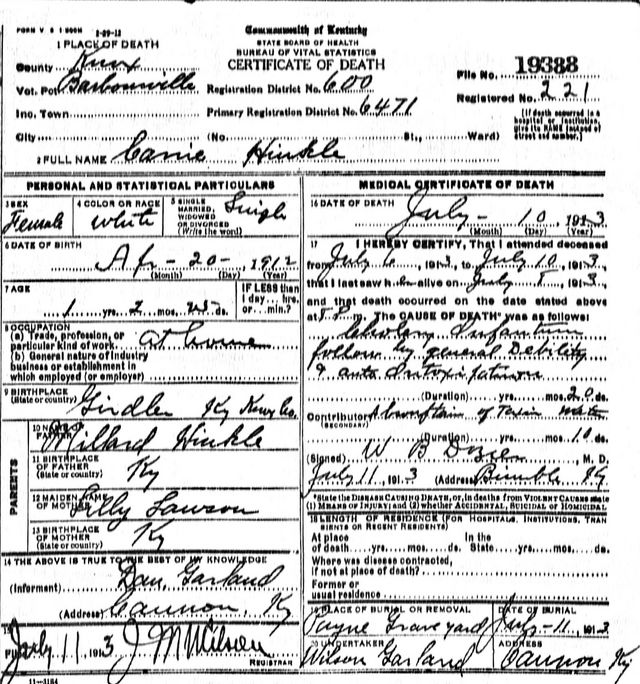 FORM V S 1 2-29-12
Commonwealth of Kentucky
STATE BOARD OF HEALTH
BUREAU OF VITAL STATISTICS
CERTIFICATE OF DEATH
1 PLACE OF DEATH
County Knox
Vot. Pct Barbourville
Inc. Town
City (No. St., Ward)
Registration District No. 600
Primary Registration District No. 6471
File No. 19388
Registered No. 221
[If death occurred in a
hospital or institution,
give its NAME instead of
street and number.]
2 FULL NAME Carrie Hinkle
PERSONAL AND STATISTICAL PARTICULARS
3 SEX Female
4 COLOR OR RACE White
5 SINGLE
MARRIED,
WIDOWED
OR DIVORCED
(Write the word)
Single
6 DATE OF BIRTH
Ap - 20 - 1912
(Month) (Day) (Year)
7 AGE
IF LESS than
1 day... hrs.
or ... min.?
1 yrs. 2 mos. ds.
8 OCCUPATION
(a) Trade, profession, or
particular kind of work at home
(b) General nature of industry
business or establishment in
which employed (or employer)
9 BIRTHPLACE
(State or country) Girdler Ky Knox Co.
PARENTS
10 NAME OF
FATHER Millard Hinkle
11 BIRTHPLACE
OF FATHER
(State or country) Ky
12 MAIDEN NAME
OF MOTHER Lilly Lawson
13 BIRTHPLACE
OF MOTHER
(State or country) Ky
14 THE ABOVE IS TRUE TO THE BEST OF MY KNOWLEDGE
(Informent) Dan Garland
(Address) Cannon, Ky
15
July 11 1913 J M Wilson
REGISTRAR
11-3184
MEDICAL CERTIFICATE OF DEATH
16 DATE OF DEATH
July - 10 1913
(Month) (Day) (Year)
17 I HEREBY CERTIFY, That I attended deceased
from July 6, 1913, to July 10, 1913,
that I last saw h alive on July 8, 1913,
and that death occurred on the date stated above
at P.m. The CAUSE OF DEATH* was as follows:
Infantum
follow by general Debility
& auto Intoxication
(Duration) yrs. mos. 20 ds.
Contributory
(SECONDARY) of Toxin
(Duration) yrs. mos. 10 ds.
(Signed) W B M. D.
July 11, 1913 (Address) Bimble Ky
*State the DISEASE CAUSING DEATH, or, in deaths from VIOLENT CAUSES state
(1) MEANS OF INJURY; and (2) whether ACCIDENTAL, SUICIDAL or HOMICIDAL
18 LENGTH OF RESIDENCE (FOR HOSPITALS, INSTITUTIONS, TRAN
SIENTS OR RECENT RESIDENTS)
At place
of death yrs. mos. ds.
In the
State yrs. mos. ds.
Where was disease contracted,
if not at place of death?
Former or
usual residence
19 PLACE OF BURIAL OR REMOVAL
Payne Graveyard
DATE OF BURIAL
July - 11, 1913
20 UNDERTAKER
Wilson Garland
ADDRESS
Cannon Ky